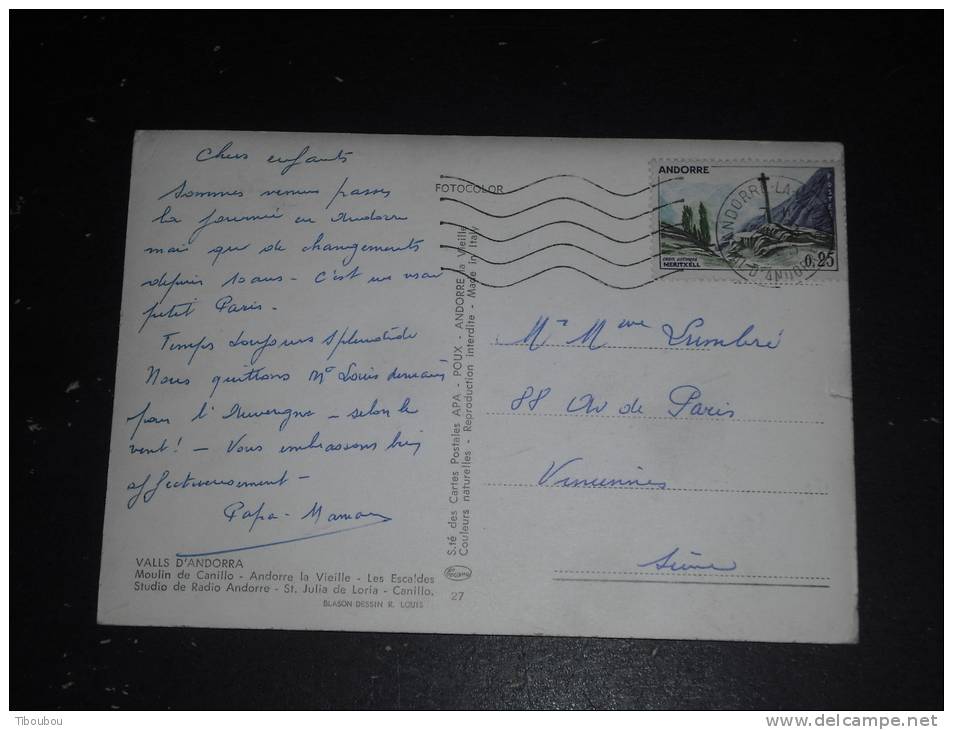 Chers enfants
Sommes venus passer
la journée en Andorre
mais que de changements
depuis 10 ans - C'est un vrai
petit Paris.
Temps toujours splendide
Nous quittons Mr Louis demain
pour l'Auvergne - selon le
vent! - Vous embrassons bien
affectueusement -
Papa - Maman
VALLS D'ANDORRA
Moulin de Canillo - Andorre la Vieille - Les Escaldes
Studio de Radio Andorre - St. Julia de Loria - Canillo.
BLASON DESSIN R. LOUIS
27
FOTOCOLOR
S.té des Cartes Postales APA - POUX - ANDORRE la Vieille
Couleurs naturelles - Reproduction interdite - Made in Italy
ANDORRE
POSTES
CROIX GOTHIQUE
MERITXELL
0,25
ANDORRE-LA-
D'ANDORRE
Mr Mme
88 Av de Paris
Vincennes
Seine
Tiboubou
www.delcampe.net